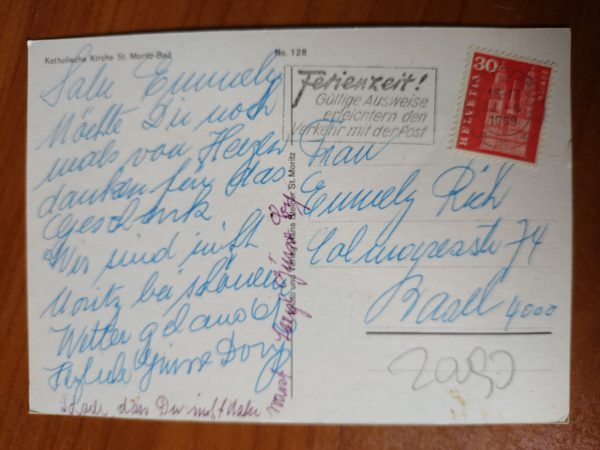 Katholische Kirche St. Moritz-Bad
No. 128
Salu Emmely
Möchte Dir noch
mals von Herzen
danken für das
Geschenk
Wir sind in St
Moritz bei schönem
Wetter
Herzl. Grüsse
Schade dass Du nicht dabei
warst
Ferienzeit!
Gültige Ausweise
erleichtern den
Verkehr mit der Post
30
HELVETIA
1968
Frau
Emmely Rich
Colmarerstr 74
Basel 4000
St. Moritz